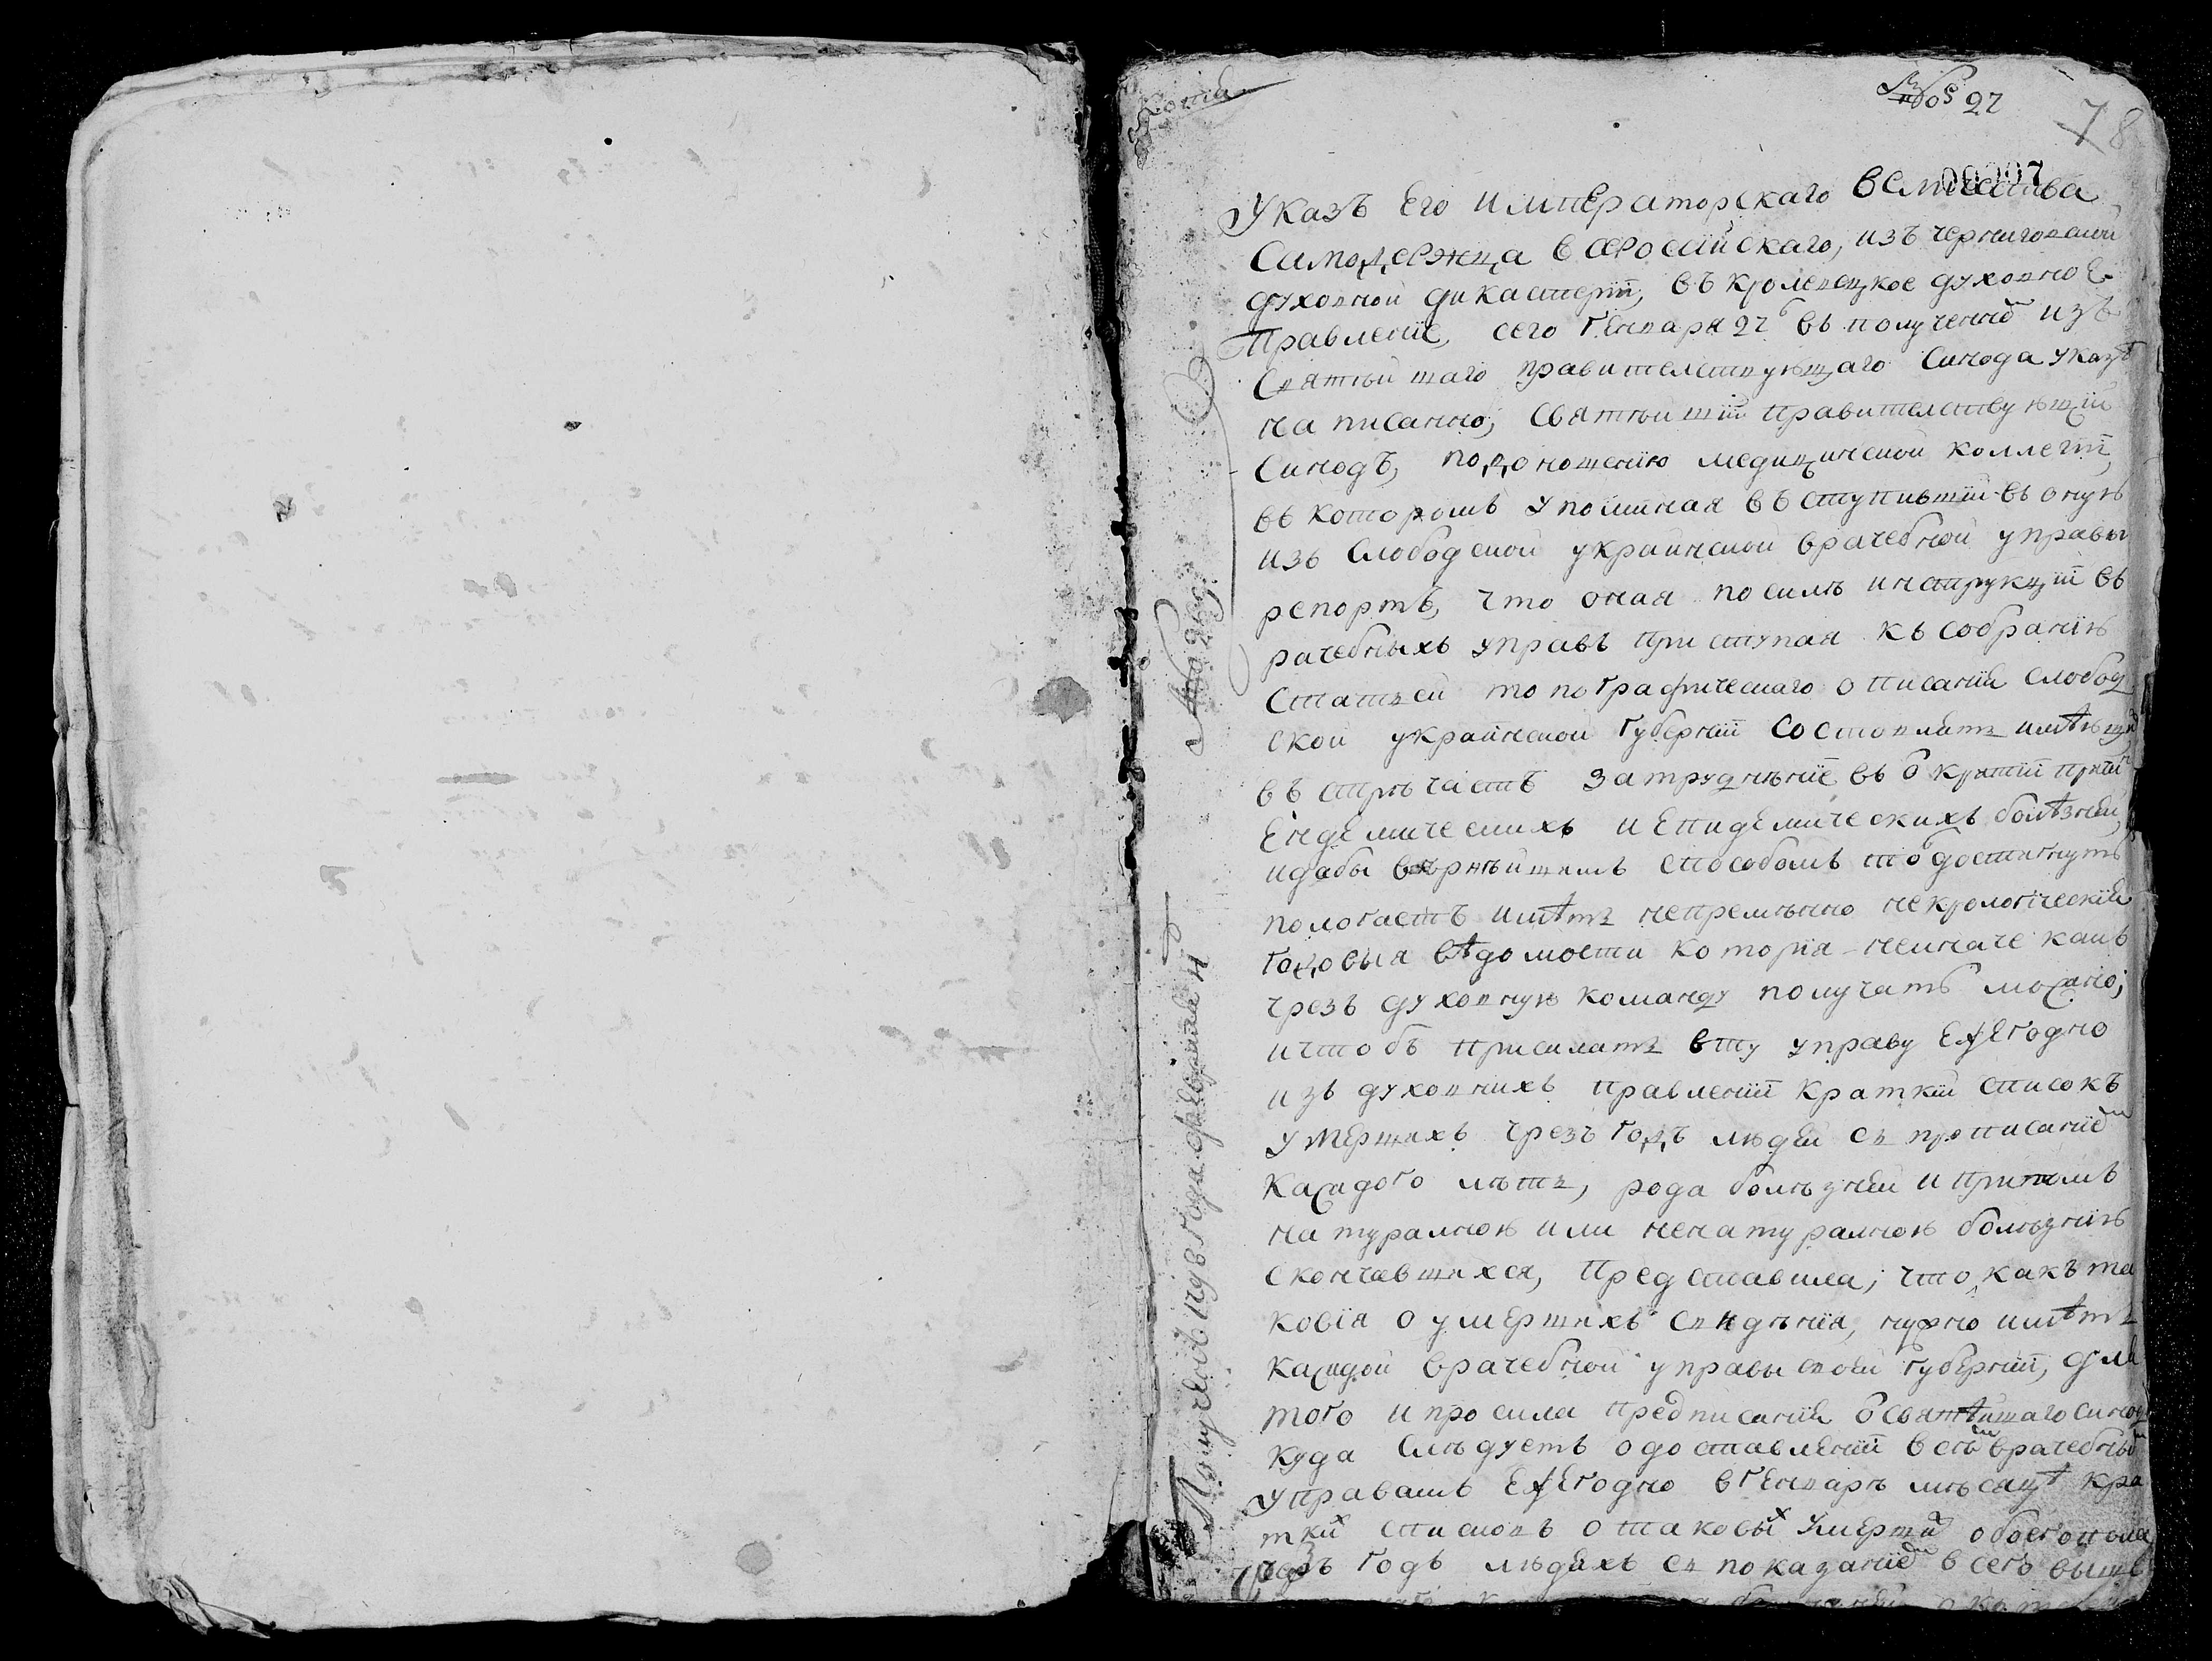 Копія
№ 27
78
00007
Указъ Его Императорскаго Величества
Самодержца Всеросийскаго, изъ черниговской
духовной дикастерїи, въ кролевецкое духовное
Правленїе, сего Генваря 27 въ полученномъ изъ
Святѣйшаго правителствующаго Синода указѣ
написанно; Святѣйшїй правителствующїй
Синодъ, подоношенїю медицинской коллегїи,
въ которомъ упоминая вступившїй въ оную
изъ Слободской украинской врачебной управы
репортъ, что оная посилѣ инструкцїи в
рачебныхъ управъ приступая къ собранїю
Статьей топографическаго описанїя Слобод
ской украинской Губернїи состоять имѣющ
встрѣчаетъ затрудненїе въ открытїи причинъ
Ендемическихъ и Епидемическихъ болѣзней,
идабы вѣрнѣйшимъ способомъ то достигнуть
пологаетъ имѣть непремѣнно некрологическїя
годовыя вѣдомости которїя неиначе какъ
чрезъ духовную команду получать можно;
ичтобъ присилать вту управу Ежегодно
изъ духовнихъ правленїй краткїй списокъ
умершихъ чрезъ годъ людей съ прописанїемъ
каждого лѣтъ, рода болѣзней и притомъ
натуралною или ненатуралною болѣзнїю
скончавшихся, представила; что какъ та
ковїя о умершихъ свѣденїя, нужно имѣть
каждой врачебной управы своей губернїи, для
того и просила предписанїя отъ Святѣйшаго Синода
куда слѣдуетъ о доставленїи всемъ врачебнымъ
управамъ Ежегодно в Генварѣ мѣсяцѣ кра
ткихъ списковъ о таковыхъ умершихъ обоегополa
чрезъ годъ людехъ съ показанїемъ всего выше
№ 265
Полученъ 1798 года февраля 4